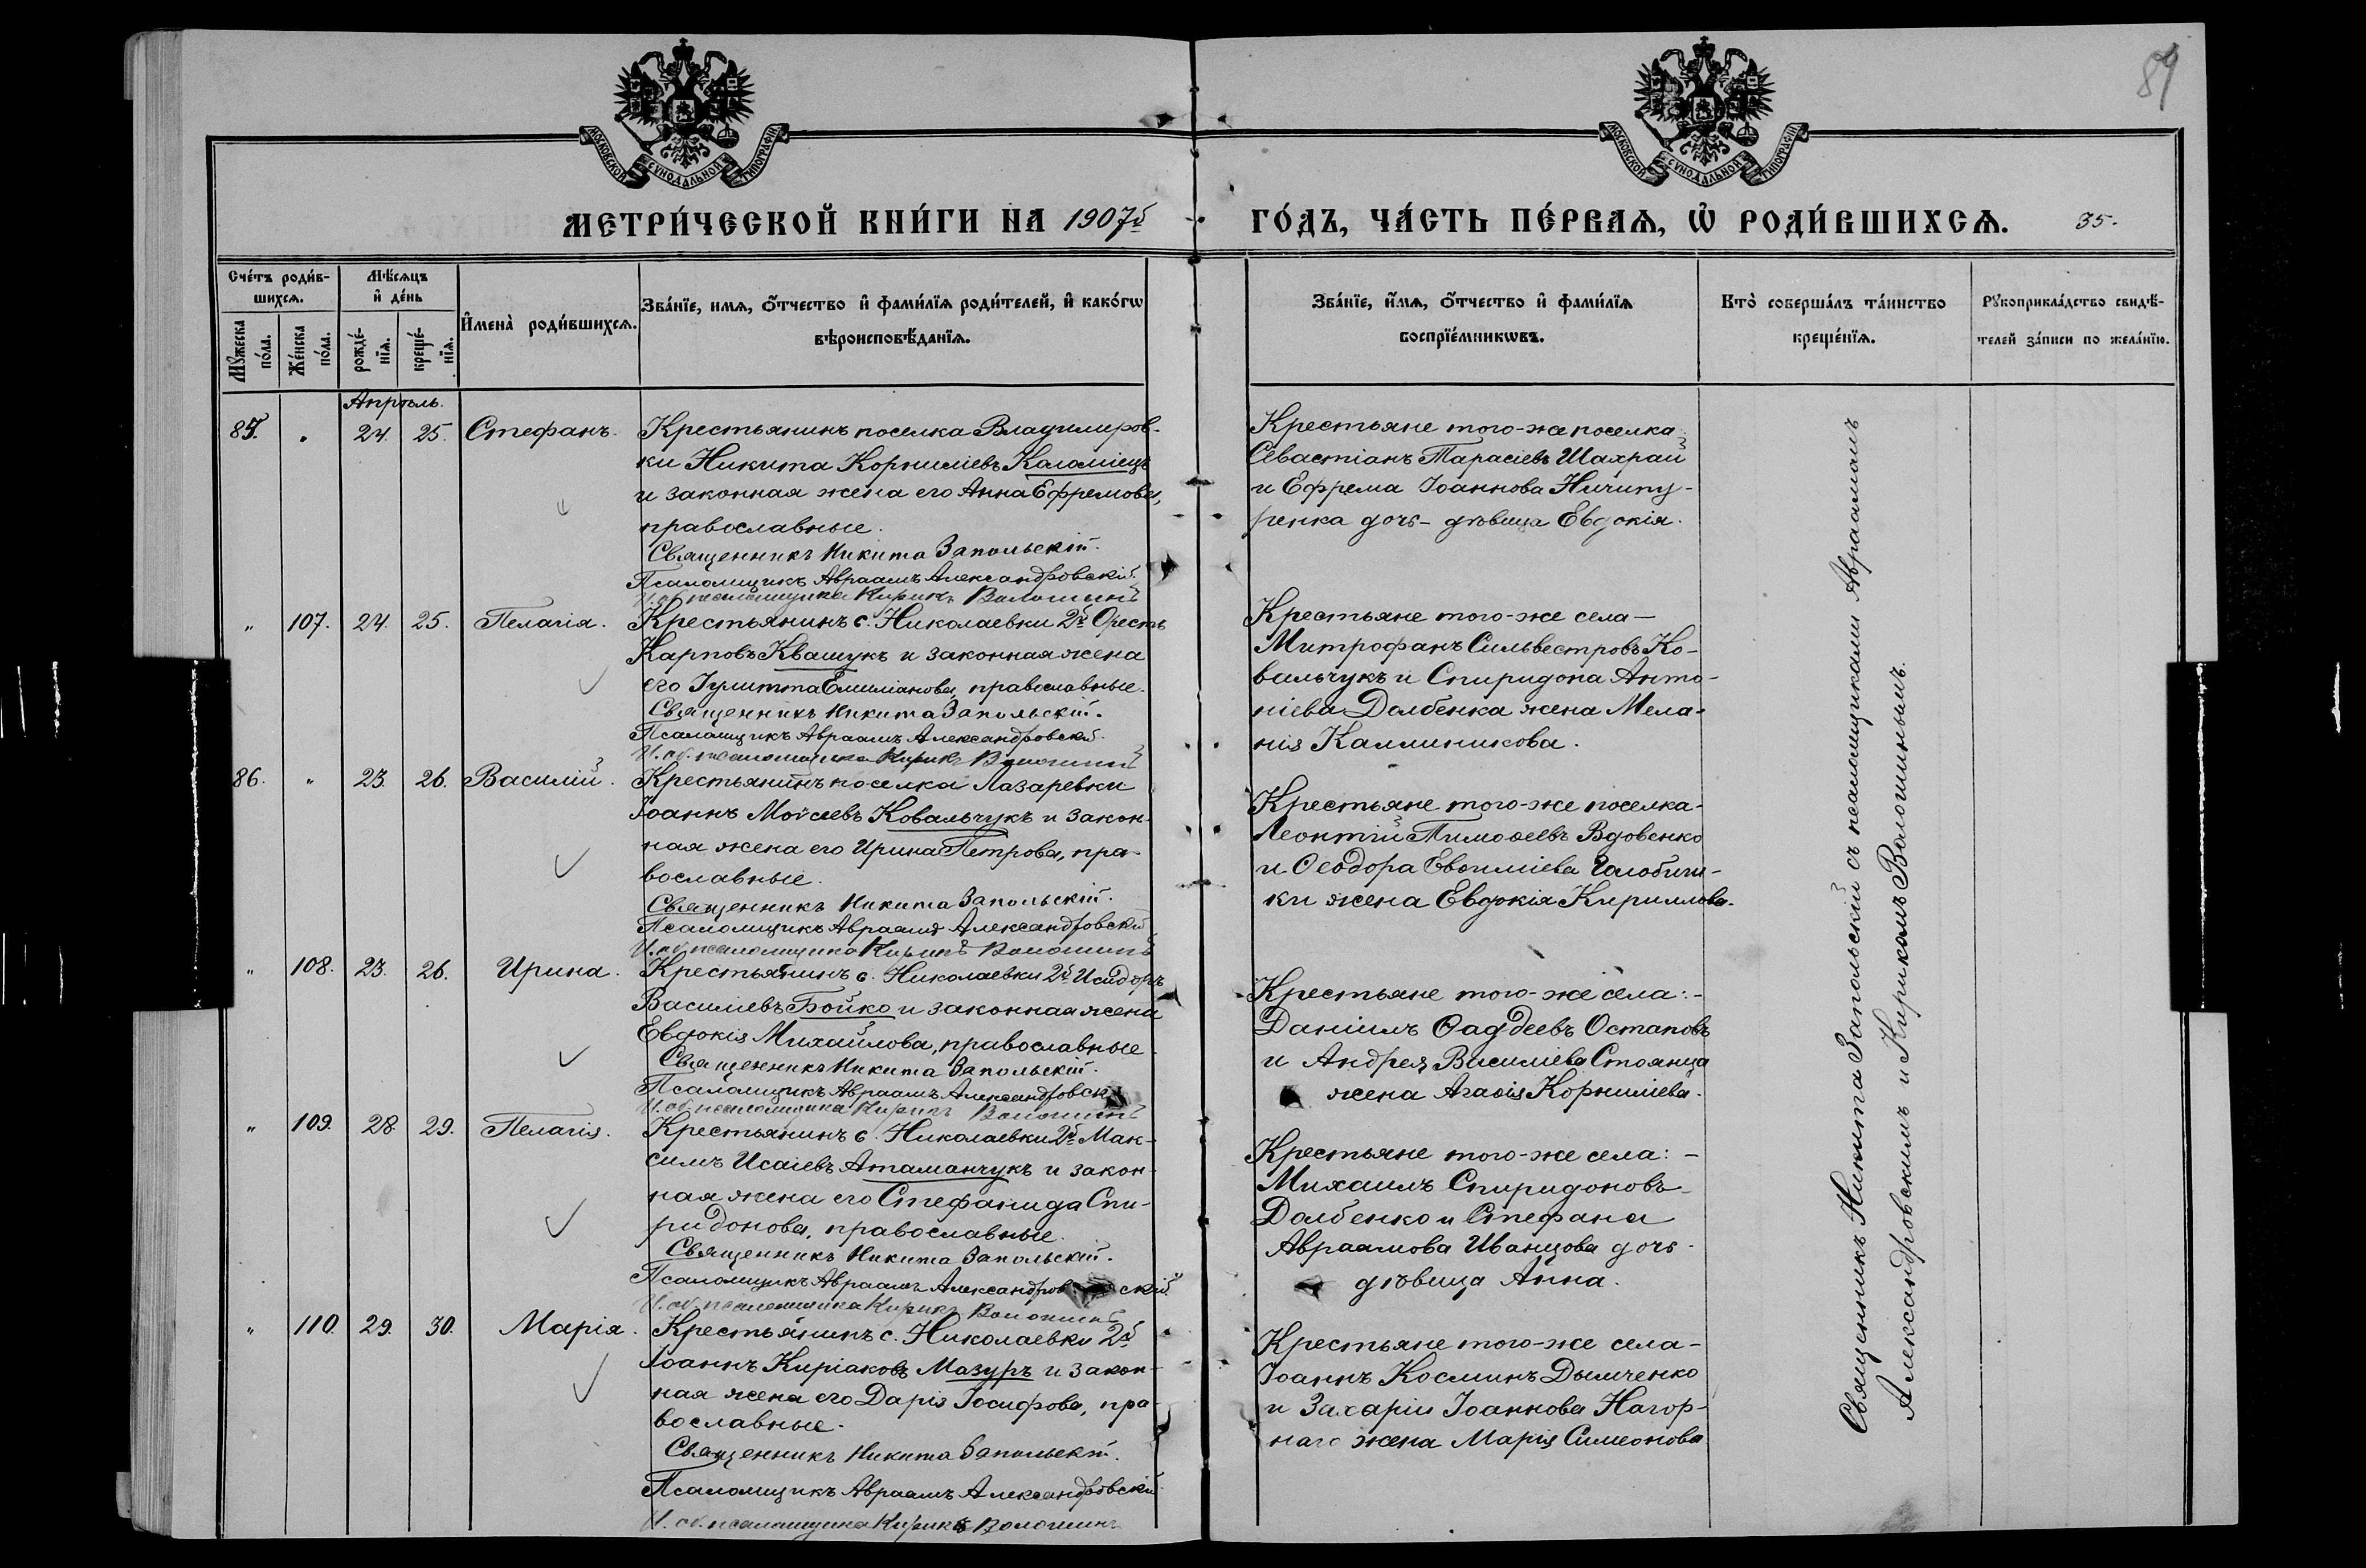 89
МОСКОВСКОЙ СѴНОДАЛЬНОЙ ТИПОГРАФІИ
МОСКОВСКОЙ СѴНОДАЛЬНОЙ ТИПОГРАФІИ
МЕТРИ́ЧЕСКОЙ КНИ́ГИ НА 1907й ГО́ДЪ, ЧА́СТЬ ПЕ́РВАѦ, Ѡ҆ РОДИ́ВШИХСѦ. 35.
Сче́тъ роди́в-
шихсѧ.
Мꙋ́жеска
по́ла.
Же́нска
по́ла.
Мѣ́сѧцъ
и҆ де́нь
рожде́-
нїѧ.
креще́-
нїѧ.
И҆мена̀ роди́вшихсѧ.
Зва́нїе, и҆мѧ, ѻ҆́тчество и҆ фами́лїѧ роди́телей, и҆ како́гѡ
вѣроисповѣ́данїѧ.
Зва́нїе, и҆́мѧ, ѻ҆́тчество и҆ фами́лїѧ
воспрїе́мникѡвъ.
Кто̀ соверша́лъ та́инство
креще́нїѧ.
Рꙋкоприкла́дство свидѣ́-
телей за́писи по жела́нїю.
Апрѣль.
85. " 24. 25. Стефанъ.
Крестьянинъ поселка Владимиров-
ки Никита Корниліевъ Коломіецъ
и законная жена его Анна Ефремова,
православные.
Священникъ Никита Запольскій.
Псаломщикъ Авраамъ Александровскій
И. об. псаломщика Кирикъ Волошинъ
Крестьяне того-же поселка
Севастіанъ Тарасіевъ Шахрай
и Ефрема Іоаннова Ничипу-
ренка дочь - дѣвица Евдокія.
" 107. 24. 25. Пелагія.
Крестьянинъ с. Николаевки 2й Орестъ
Карповъ Квашукъ и законная жена
его Іулитта Емиліанова, православные.
Священникъ Никита Запольскій.
Псаломщикъ Авраамъ Александровскій.
И. об. псаломщика Кирикъ Волошинъ
Крестьяне того-же села -
Митрофанъ Сильвестровъ Ко-
вальчукъ и Спиридона Анто-
ніева Долбенка жена Мела-
нія Каллиникова.
86. " 23. 26. Василій.
Крестьянинъ поселка Лазаревки
Іоаннъ Моѵсеевъ Ковальчукъ и закон-
ная жена его Ирина Петрова, пра-
вославные.
Священникъ Никита Запольскій.
Псаломщикъ Авраамъ Александровскій
И. об. псаломщика Кирикъ Волошинъ
Крестьяне того-же поселка -
Леонтій Тимоѳеевъ Вдовенко
и Ѳеодора Евѳиміева
ки жена Евдокія Кириллова.
" 108. 23. 26. Ирина.
Крестьянинъ с. Николаевки 2й Исидоръ
Василіевъ Бойко и законная жена
Евдокія Михайлова, православные.
Священникъ Никита Запольскій.
Псаломщикъ Авраамъ Александровск
И. об. псаломщика Кирикъ Волошинъ
Крестьяне того-же села: -
Даніилъ Ѳаддеевъ Остаповъ
и Андрея Василіева Стоянца
жена Агаѳія Корниліева.
" 109. 28. 29. Пелагія.
Крестьянинъ с. Николаевки 2й Мак-
симъ Исаіевъ Атаманчукъ и закон-
ная жена его Стефанида Спи-
ридонова, православные.
Священникъ Никита Запольскій.
Псаломщикъ Авраамъ Александровскій
И. об. псаломщика Кирикъ Волошинъ
Крестьяне того-же села: -
Михаилъ Спиридоновъ
Долбенко и Стефана
Авраамова Иванцова дочь -
дѣвица Анна.
" 110. 29. 30. Марія.
Крестьянинъ с. Николаевки 2й
Іоаннъ Киріаковъ Мазуръ и закон-
ная жена его Дарія Іосифова, пра-
вославные.
Священникъ Никита Запольскій.
Псаломщикъ Авраамъ Александровскій
И. об. псаломщика Кирикъ Волошинъ
Крестьяне того-же села -
Іоаннъ Косминъ Дымченко
и Захаріи Іоаннова Нагор-
наго жена Марія Симеонова
Священникъ Никита Запольскій съ псаломщиками Авраамомъ
Александровскимъ и Кирикомъ Волошинымъ.